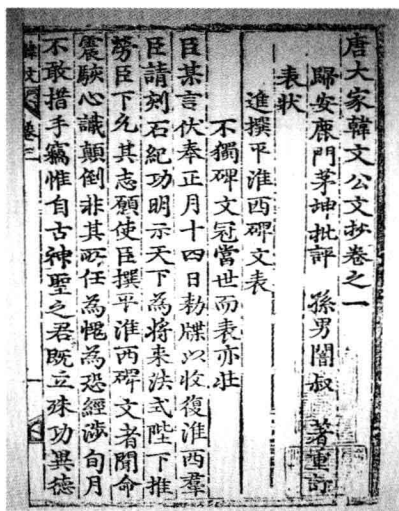 唐大家韓文公文抄卷之一
歸安鹿門茅坤批評 孫男闇叔 著重訂
表狀
進撰平淮西碑文表
不獨碑文冠當世而表亦壯
臣某言伏奉正月十四日勑牒以收復淮西羣
臣請刻石紀功明示天下為將来法式陛下推
勞臣下允其志願使臣撰平淮西碑文者聞命
震駭心識顛倒非其所任為愧為恐經涉旬月
不敢措手竊惟自古神聖之君既立殊功異德
韓文 卷之一